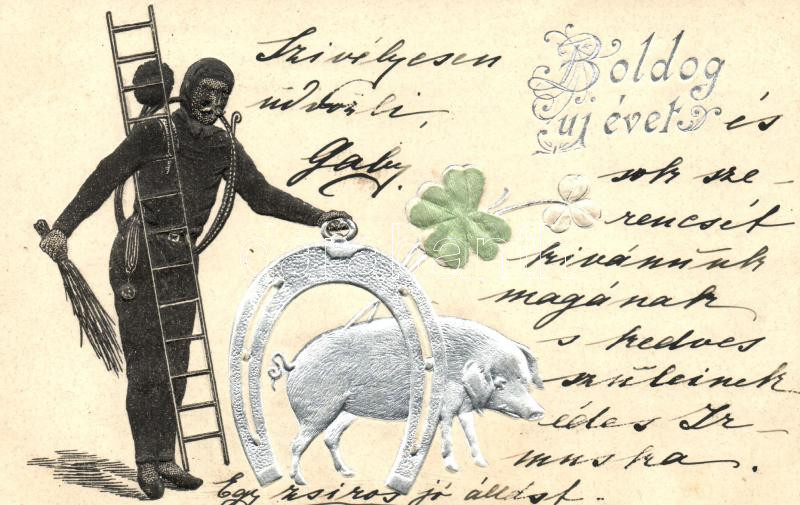 Szivélyesen
üdvözli,
Gaby.
Boldog
uj évet és
sok sze-
rencsét
kivánunk
magának
s kedves
szüleinek
édes Ir-
muska.
Egy zsiros jó állást.